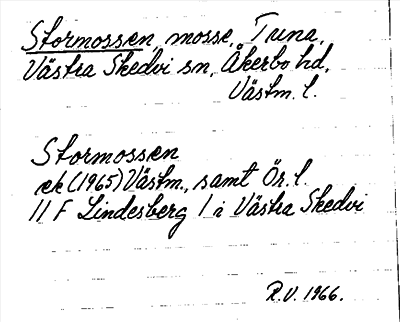 Stormossen mosse, Tuna,
Västra Skedvi sn, Åkerbo hd,
Västm. l.
Stormossen
ek (1965) Västm., samt Ör. l.
11 F Lindesberg 1 i Västra Skedvi
R.V. 1966.